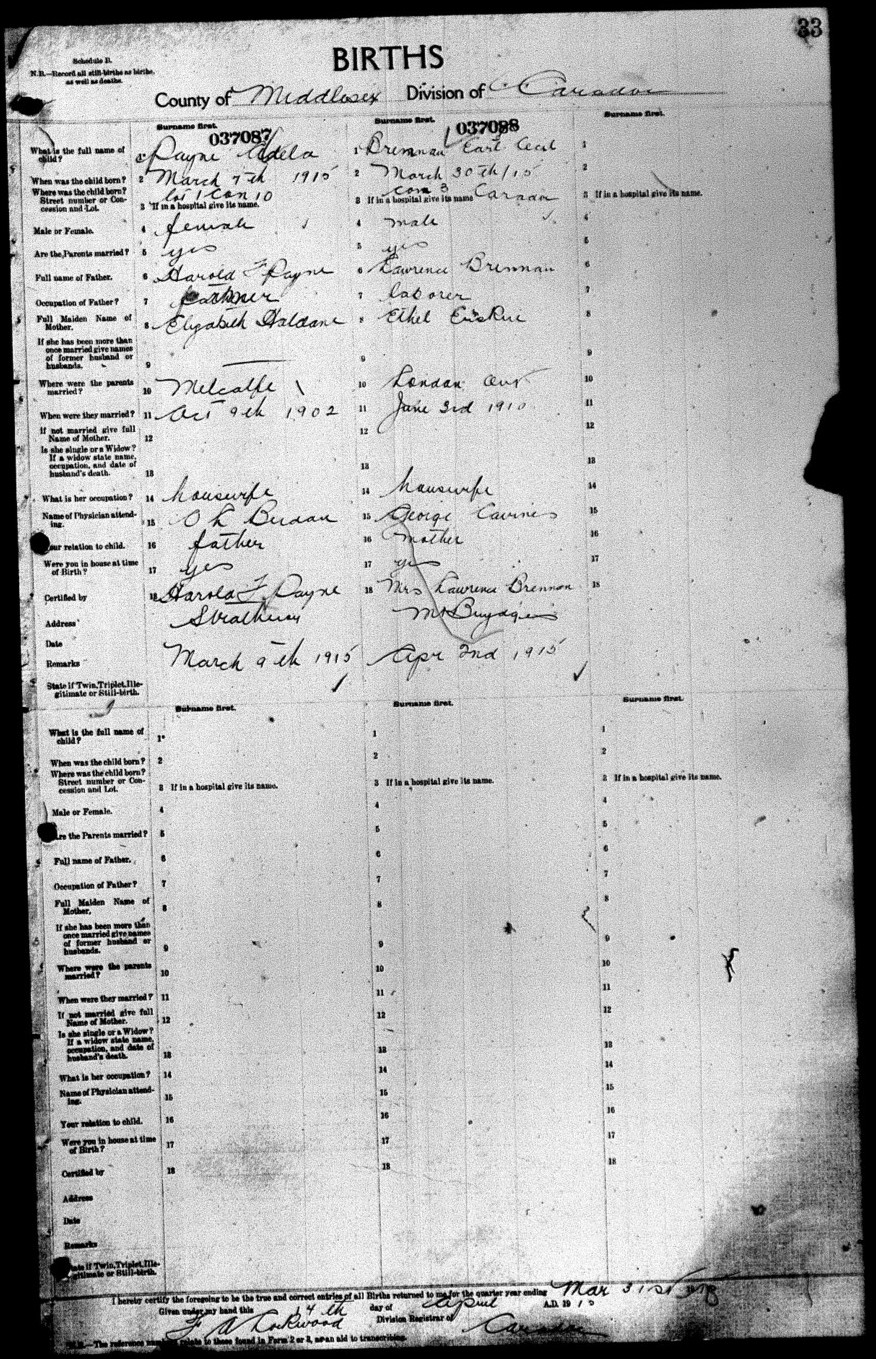 33
Schedule B.
N.B.—Record all still-births as births,
as well as deaths.
BIRTHS
County of Middlesex Division of Caradoc
Surname first. Surname first. Surname first.
037087 037088
What is the full name of child? 1 Payne Adela 1 Brennan Earl Cecil 1
When was the child born? 2 March 7th 1915 2 March 30th/15 2
Where was the child born? Street number or Concession and Lot. lot 1 Con 10 con 3 Caradoc
3 If in a hospital give its name. 3 If in a hospital give its name 3 If in a hospital give its name.
Male or Female. 4 female 4 male 4
Are the Parents married? 5 yes 5 yes 5
Full name of Father. 6 Harold F Payne 6 Lawrence Brennan 6
Occupation of Father? 7 farmer 7 laborer 7
Full Maiden Name of Mother. 8 Elizabeth Haldane 8 Ethel Erskine 8
If she has been more than once married give names of former husband or husbands. 9 9 9
Where were the parents married? 10 Metcalfe 10 London Ont 10
When were they married? 11 Oct 9th 1902 11 June 3rd 1910 11
If not married give full Name of Mother. 12 12 12
Is she single or a Widow? If a widow state name, occupation, and date of husband's death. 13 13 13
What is her occupation? 14 housewife 14 housewife 14
Name of Physician attending. 15 O L Berdan 15 George 15
Your relation to child. 16 father 16 mother 16
Were you in house at time of Birth? 17 yes 17 yes 17
Certified by 18 Harold F. Payne 18 Mrs Lawrence Brennan 18
Address Strathroy Mt Brydges
Date
Remarks March 9th 1915 Apr 2nd 1915
State if Twin, Triplet, Illegitimate or Still-birth.
Surname first. Surname first. Surname first.
What is the full name of child? 1 1 1
When was the child born? 2 2 2
Where was the child born? Street number or Concession and Lot. 3 If in a hospital give its name. 3 If in a hospital give its name. 3 If in a hospital give its name.
Male or Female. 4 4 4
Are the Parents married? 5 5 5
Full name of Father. 6 6 6
Occupation of Father? 7 7 7
Full Maiden Name of Mother. 8 8 8
If she has been more than once married give names of former husband or husbands. 9 9 9
Where were the parents married? 10 10 10
When were they married? 11 11 11
If not married give full Name of Mother. 12 12 12
Is she single or a Widow? If a widow state name, occupation, and date of husband's death. 13 13 13
What is her occupation? 14 14 14
Name of Physician attending. 15 15 15
Your relation to child. 16 16 16
Were you in house at time of Birth? 17 17 17
Certified by 18 18 18
Address
Date
Remarks
State if Twin, Triplet, Illegitimate or Still-birth.
I hereby certify the foregoing to be the true and correct entries of all Births returned to me for the quarter year ending Mar 31st
Given under my hand this 14th day of April A.D. 1915
F A Lockwood Division Registrar of Caradoc
N.B.—The reference numbers relate to those found in Form 2 or 3, as an aid to transcribing.